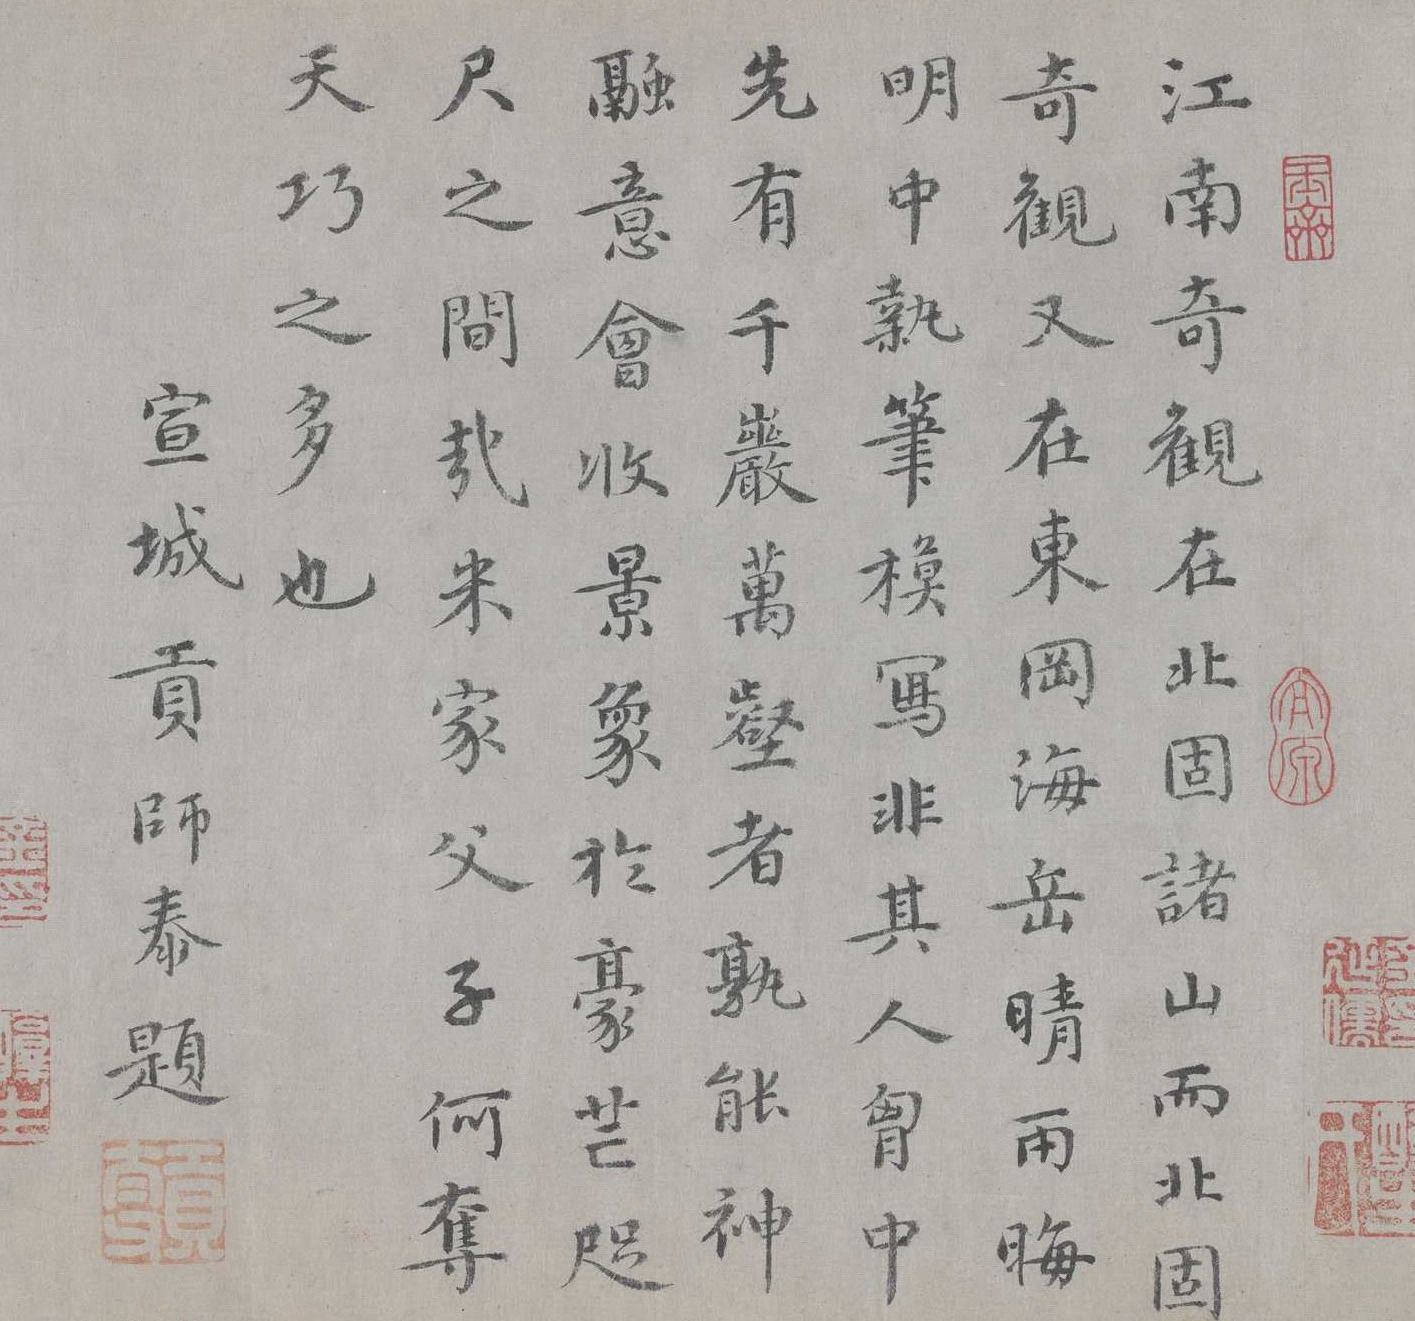 江南奇觀在北固諸山而北固
奇觀又在東岡海岳晴雨晦
明中執筆模寫非其人胷中
先有千巖萬壑者孰能神
融意會收景象於豪芒咫
尺之間哉米家父子何奪
天巧之多也
宣城貢師泰題